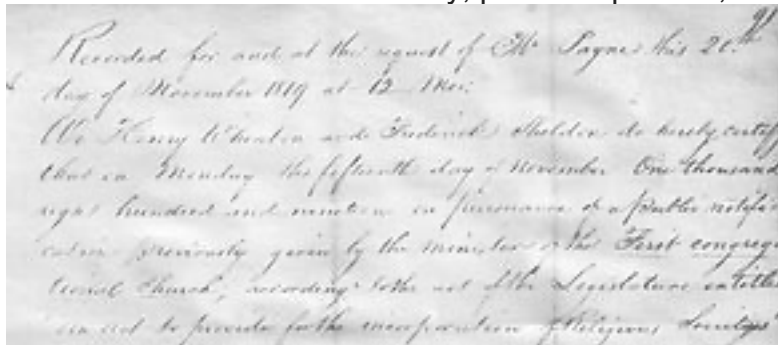 Recorded for and at the request of Mr Payne this 20th
day of November 1819 at 12 Mer:
We Henry Wheaton and Frederick Sheldon do hereby certify
that on Monday the fifteenth day of November One thousand
eight hundred and nineteen in pursuance of a public notifi
cation previously given by the minister of the First congrega
tional Church, according to the act of the Legislature entitled
an act to provide for the incorporation of Religious Societies